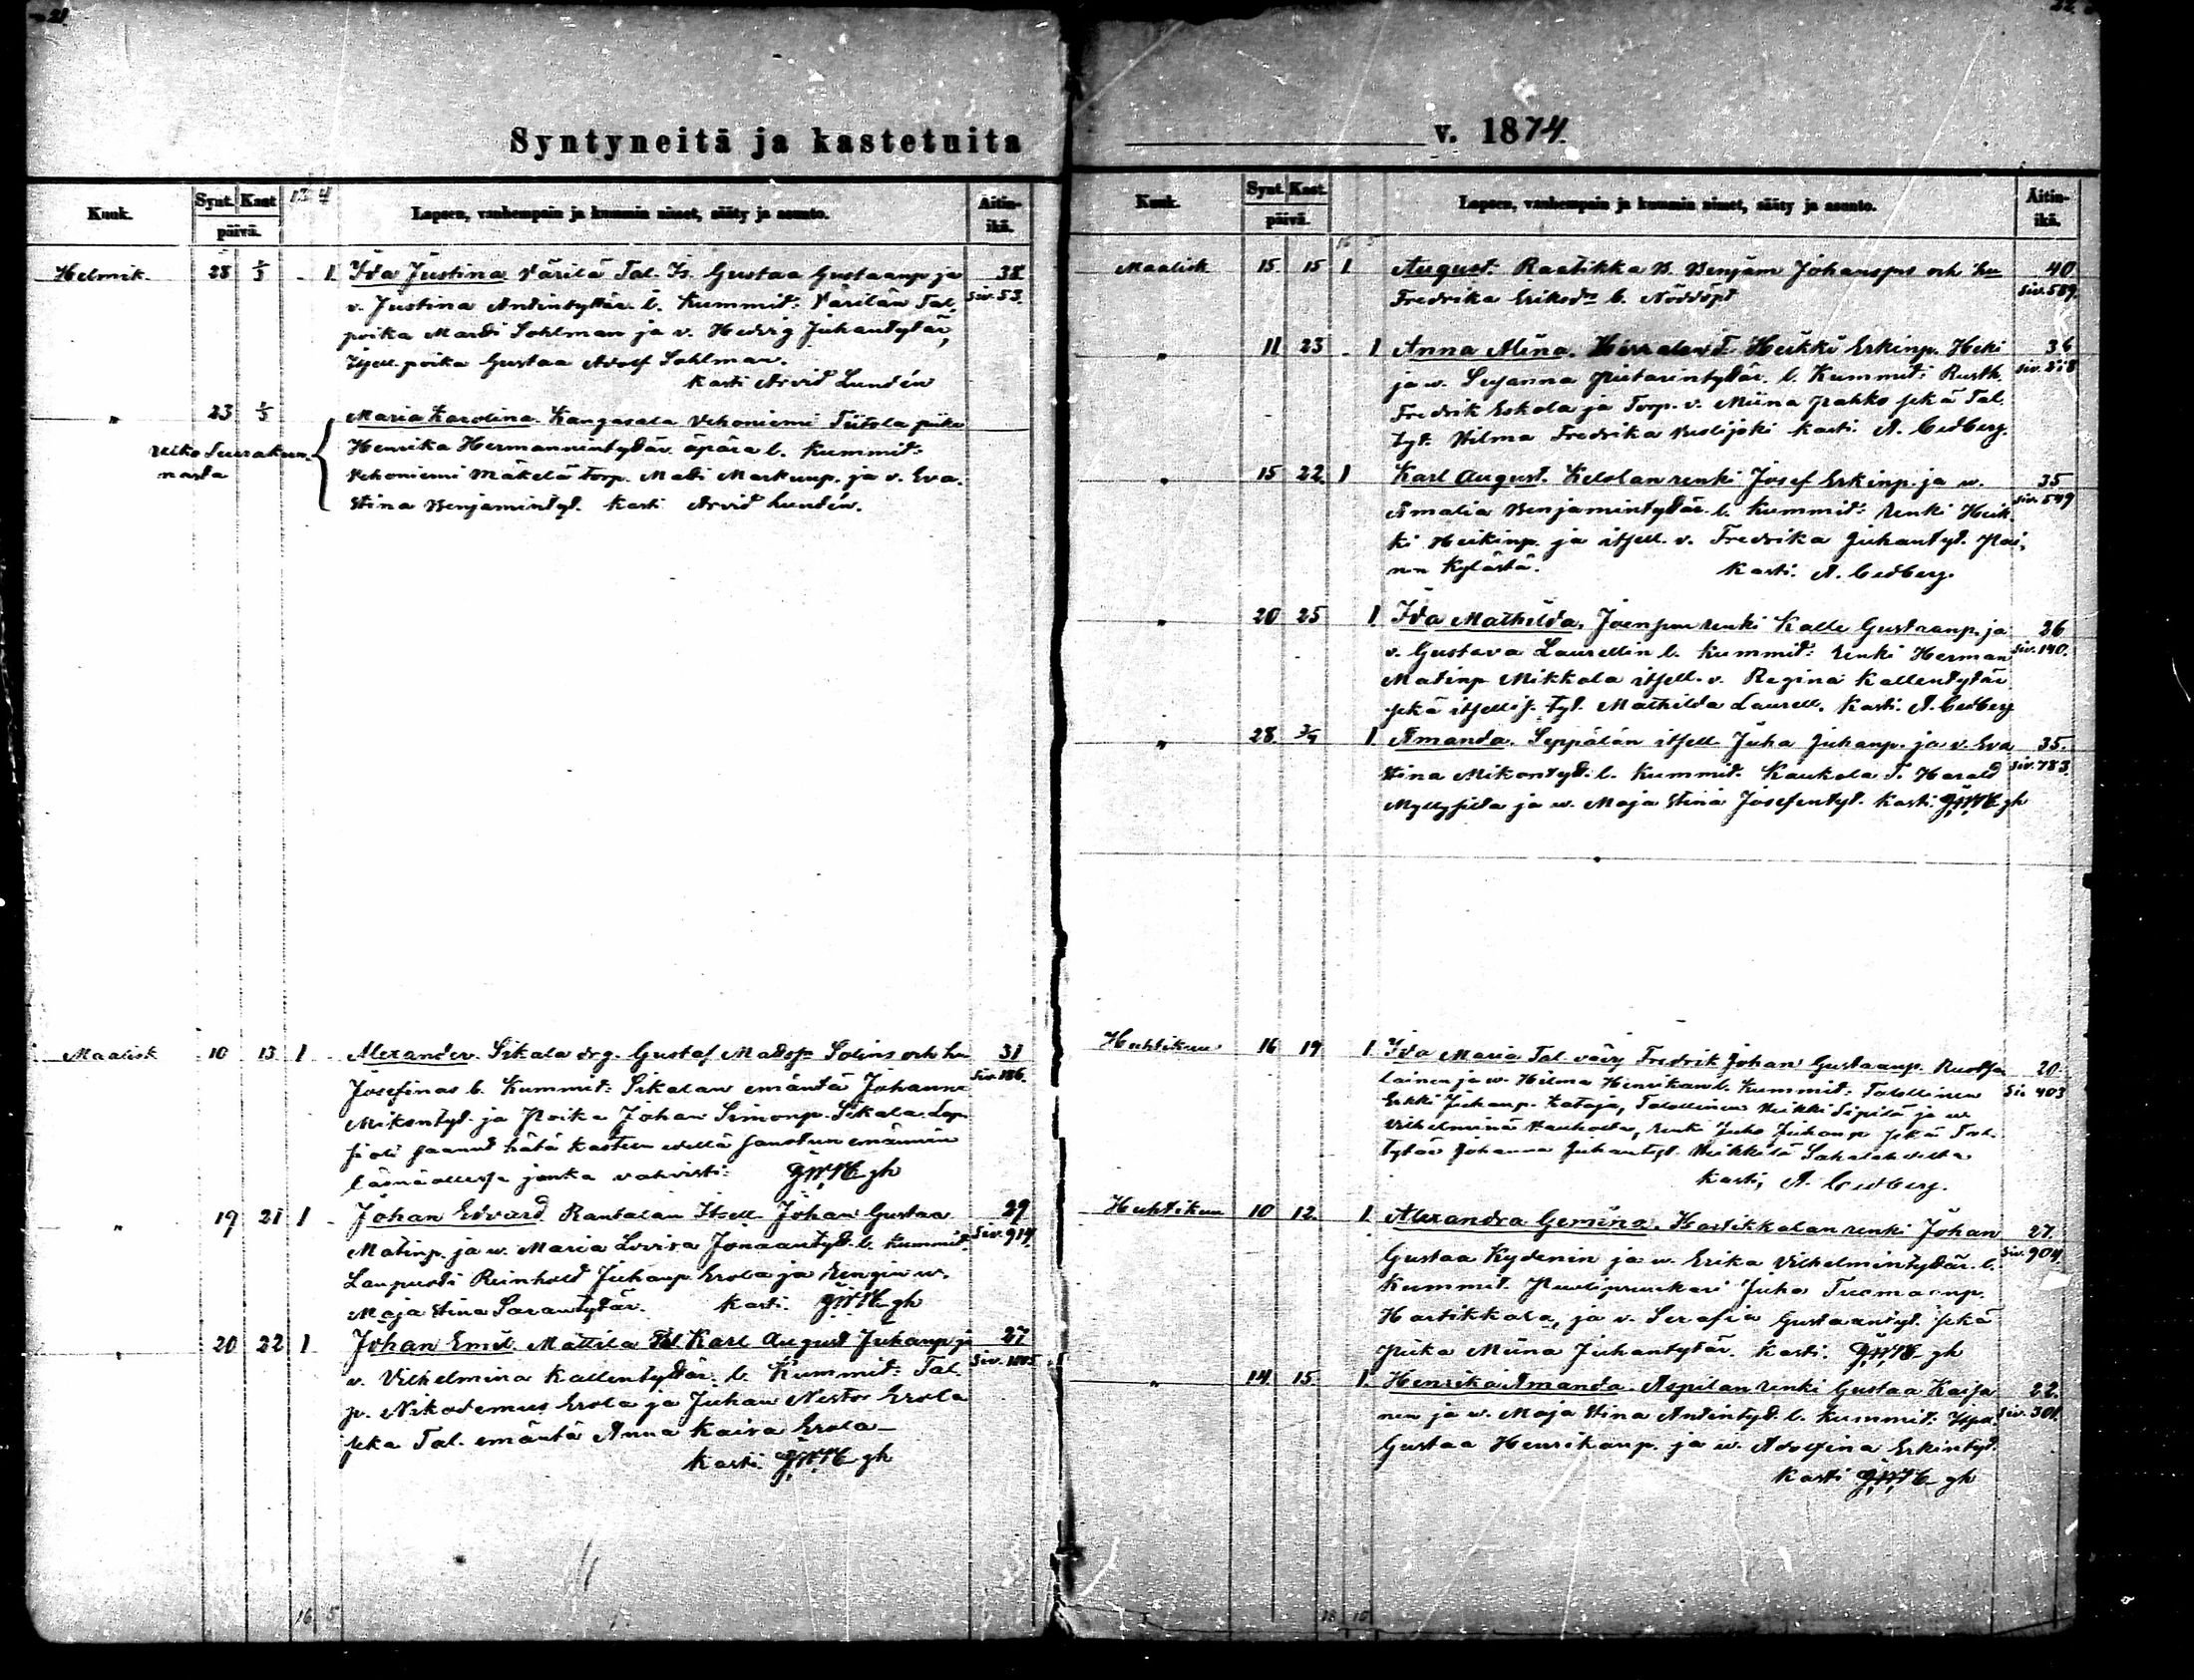 21.
Syntyneitä ja kastetuita
Kuuk. Synt. Kast. päivä. 13 4 Lapsen, vanhempain ja kummin nimet, sääty ja asunto. Äitin-ikä.
Helmik. 28 1/3 1 Ida Justina Värilä Tal. Is. Gustaa Gustaanp. ja 38
v. Justina Antintytär. l. Kummit: Värilän Tal. Siv. 53.
poika Matti Sohlman ja v. Hedvig Juhantytär,
Itsell. poika Gustaa Adolf Sahlman.
Kasti Arvid Lundén
" 23 1/3 Maria Karolina. Kangasala Vehoniemi Tiitola piika
Ulko Seurakun- Henrika Hermannintytär äpärä l. Kummit:
nasta Vehoniemi Mäkelä torp. Matti Markunp. ja v. Eva.
Stina Benjamintyt. Kasti Arvid Lundén.
Maalisk 10 13 1 Alexander. Sikala drg. Gustaf Matsp Solins och hu 31
Josefinas b. Kummit: Sikalan emäntä Johanna Siv. 186.
Mikontyt. ja Poika Johan Simonp. Sikala. Lap
si oli saanut hätä kasteen edellä sanotun emännän
läsnäollessa jonka vahvisti: gh
" 19 21 1 Johan Edvard Rantalan Itsell. Johan Gustaa 29
Matinp. ja w. Maria Lovisa Jonaantyt. l. Kummit. Siv. 914.
Lanpuoti Reinhold Juhanp. Erola ja Rengin w.
Maja Stina Sarantytär. Kasti. gh
" 20 22 1 Johan Emil. Mattila Tal Karl August Juhanp. ja 27
v. Vilhelmina Kallentytär. l. Kummit: Tal.
p. Nikodemus Erola ja Juhan Nestor Erola
sekä Tal. emäntä Anna Kaisa Erola
Kasti. gh
16 5
22
v. 1874.
Kuuk. Synt. Kast. päivä. 16 5 Lapsen, vanhempain ja kummin nimet, sääty ja asunto. Äitin-ikä.
Maalisk 15. 15 1 August. Raatikka B. Benjam Johansps och hu 40
Fredrika Eriksdr b. Nöddöpt Siv. 589.
" 11 23 1 Anna Miina. T. Heikki Erkinp. Heki 36
ja w. Susanna Pietarintytär. l. Kummit: Rusth. Siv. 218
Fredrik Eskola ja Torp. v. Miina Pahko sekä Tal.
tyt. Hilma Fredrika Uusijoki Kasti. A. Cedberg.
" 15 22. 1 Karl August. Kelolan renki Josef Erkinp. ja w. 35
Amalia Benjamintytär. l. Kummit: Renki Heik- Siv. 549
ki Heikinp. ja itsell. v. Fredrika Juhantyt. Pai-
non Kylästä. Kasti. A. Cedberg.
" 20 25 1. Ida Mathilda. Joensuu renki Kalle Gustaanp. ja 26
v. Gustava Laurellin l. Kummit: Renki Herman Siv. 140.
Matinp. Mikkola itsell. v. Regina Kallentytär
sekä itsellis. tyt. Mathilda Laurell. Kasti. A. Cedberg
" 28. 3/4 1. Amanda. Seppälän itsell. Juha Juhanp. ja v. Eva 35.
Stina Mikontyt. l. Kummit. Kaukola T. Harald Siv. 783.
Myllysilta ja w. Maja Stina Josefintyt. Kasti. gh
Huhtikuu 16 19 1 Ida Maria Tal. vävy Fredrik Johan Gustaanp. Ruotsa 20.
lainen ja w. Hilma Henrikan l. Kummit. Talollinen Si. 403
Erkki Juhanp. Kataja, Talollinen Heikki Sipilä ja w
Vilhelmina Hauholta, renki Juho Juhanp sekä Tal.
tytär Johanna Juhantyt. Heikkilä Sahalahdelta
Kasti, A. Cedberg.
Huhtikuu 10 12. 1. Alexandra Gemina. Hartikkalan renki Johan 27.
Gustaa Kydenin ja w. Erika Vilhelmintytär. l. Siv. 904.
Kummit. Juho Tuomaanp.
Hartikkala, ja v. Serafia Gustaantyt. sekä
Piika Miina Juhantytär. Kasti. gh
" 14. 15. 1. Henrika Amanda. Aspilan renki Gustaa Kaisa 22.
nen ja w. Maja Stina Antintyt. l. Kummit. Siv. 301.
Gustaa Henrikanp. ja w. Adolfina Erkintyt.
Kasti gh
18 10